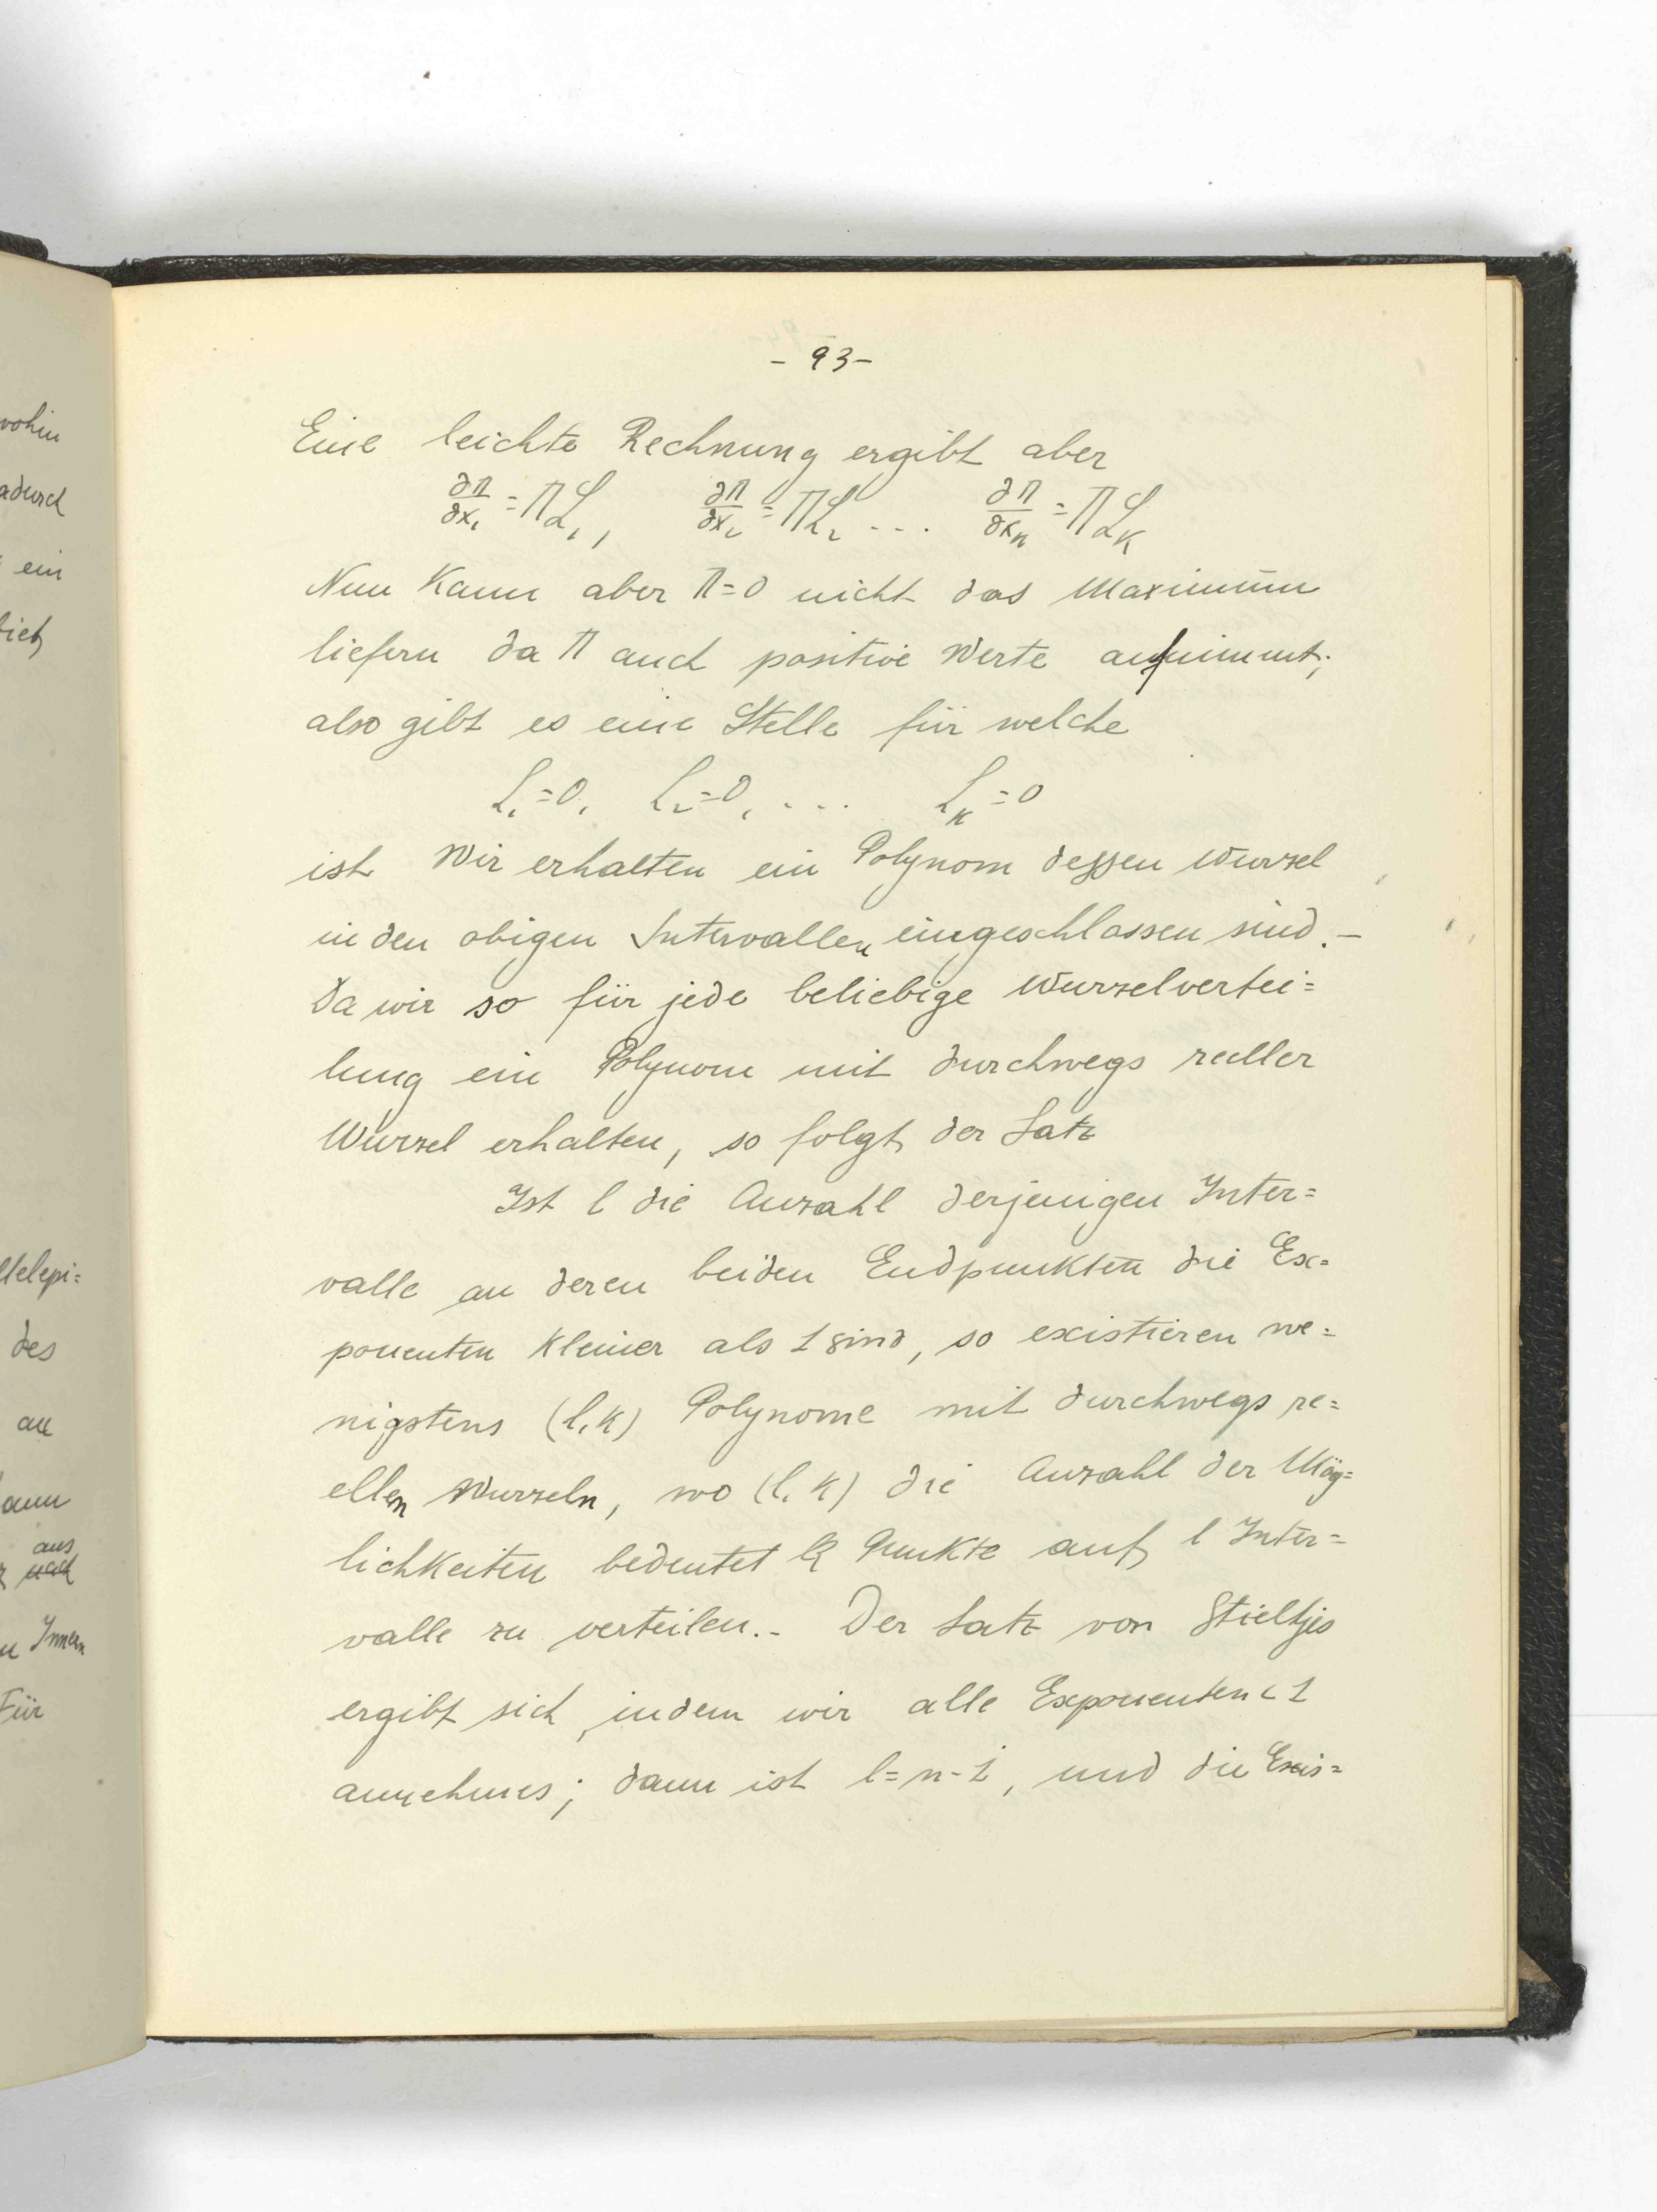 - 93 -
Eine leichte Rechnung ergibt aber
∂Π/∂x₁ = ΠL₁, ∂Π/∂x₂ = ΠL₂ ... ∂Π/∂xₖ = ΠLₖ
Nun kann aber Π=0 nicht das Maximum
liefern da Π auch positive Werte annimmt;
also gibt es eine Stelle für welche
L₁=0, L₂=0, ... Lₖ=0
ist Wir erhalten ein Polynom dessen Wurzel
in den obigen Intervallen eingeschlossen sind.-
Da wir so für jede beliebige Wurzelvertei=
lung ein Polynom mit durchwegs reeller
Wurzel erhalten, so folgt der Satz
Ist l die Anzahl derjenigen Inter=
valle an deren beiden Endpunkten die Ex=
ponenten kleiner als 1 sind, so existieren we=
nigstens (l,k) Polynome mit durchwegs re=
ellen Wurzeln, wo (l,k) die Anzahl der Mög=
lichkeiten bedeutet k Punkte auf l Inter=
valle zu verteilen.- Der Satz von Stieltjes
ergibt sich, indem wir alle Exponenten < 1
annehmes; dann ist l=n-1, und die Exis=
wohin
adurch
ein
sich
llelepi=
des
an
ann
aus
nach
Innern
Für